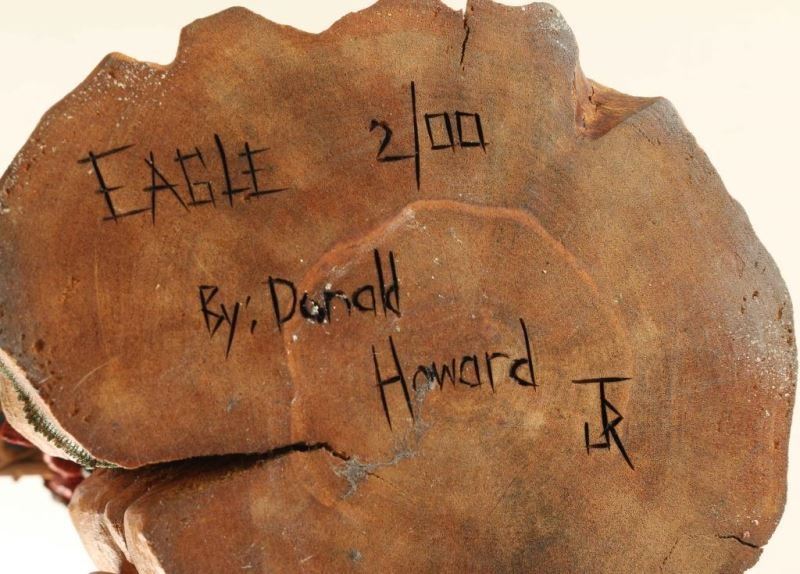 EAGLE 2/00
By: Donald
Howard JR